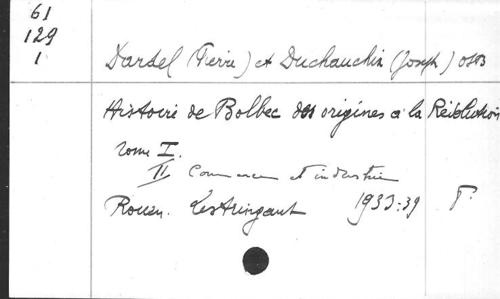 61
129
1
Dardel (Pierre) et Duchauchin (Joseph) OSB
Histoire de Bolbec des origines à la Révolution
Tome I.
II Commerce et industrie
Rouen. Lestringant 1933-39